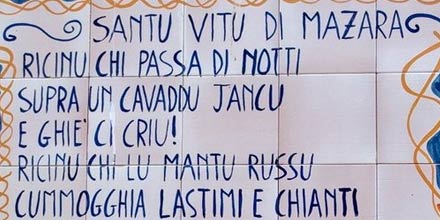 SANTU VITU DI MAZARA
RICINU CHI PASSA DI NOTTI
SUPRA UN CAVADDU JANCU
E GHIE' CI CRIU!
RICINU CHI LU MANTU RUSSU
CUMMOGGHIA LASTIMI E CHIANTI